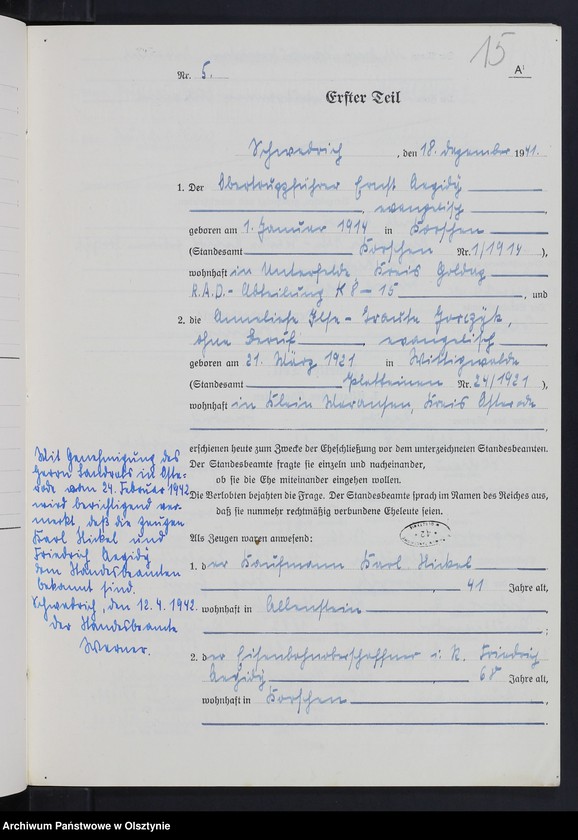 15
A¹
Nr. 5.
Erster Teil
Schwedrich, den 18. Dezember 1941.
1. Der Obertruppführer Ernst Aegidÿ
, evangelisch,
geboren am 1. Januar 1914 in Korschen
(Standesamt Korschen Nr. 1/1914),
wohnhaft in Unterfelde, Kreis Goldap
R.A.D.-Abteilung K 8 – 15, und
2. die Anneliese Ilse-Traute Jorczÿk,
ohne Beruf, evangelisch,
geboren am 21. März 1921 in Wittigwalde
(Standesamt Platteinen Nr. 24/1921),
wohnhaft in Klein Maransen, Kreis Osterode
erschienen heute zum Zwecke der Eheschließung vor dem unterzeichneten Standesbeamten.
Der Standesbeamte fragte sie einzeln und nacheinander,
ob sie die Ehe miteinander eingehen wollen.
Die Verlobten bejahten die Frage. Der Standesbeamte sprach im Namen des Reiches aus,
daß sie nunmehr rechtmäßig verbundene Eheleute seien.
Als Zeugen waren anwesend:
1. der Kaufmann Karl Hinkel
, 41 Jahre alt,
wohnhaft in Allenstein
;
2. der Eisenbahnoberschaffner i. R. Friedrich
Aegidÿ, 68 Jahre alt,
wohnhaft in Korschen
.
Mit Genehmigung des
Herrn Landrats in Oste-
rode vom 24. Februar 1942
wird berichtigend ver-
merkt, daß die Zeugen
Karl Hinkel und
Friedrich Aegidÿ
dem Standesbeamten
bekannt sind.
Schwedrich, den 12. 4. 1942.
Der Standesbeamte
Werner.
Archiwum Państwowe w Olsztynie